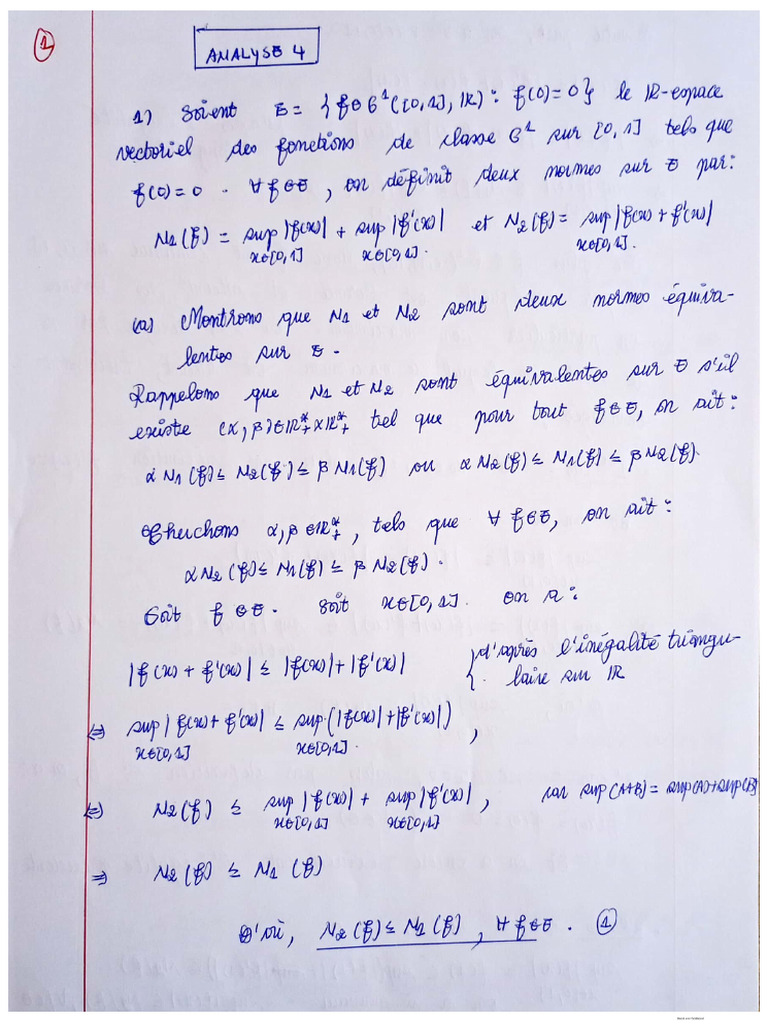 ①
ANALYSE 4
1) Soient E = {f∈C¹([0,1], IR) : f(0)=0} le IR-espace
vectoriel des fonctions de classe C¹ sur [0,1] tels que
f(0)=0 . ∀f∈E, on définit deux normes sur E par:
N₁(f) = sup|f(x)| + sup|f'(x)| et N₂(f) = sup|f(x) + f'(x)|
x∈[0,1] x∈[0,1]. x∈[0,1].
(a) Montrons que N₁ et N₂ sont deux normes équiva-
lentes sur E.
Rappelons que N₁ et N₂ sont équivalentes sur E s'il
existe (α,β)∈IR*₊×IR*₊ tel que pour tout f∈E, on ait:
αN₁(f) ≤ N₂(f) ≤ βN₁(f) ou αN₂(f) ≤ N₁(f) ≤ βN₂(f).
Cherchons α,β∈IR*₊, tels que ∀f∈E, on ait:
αN₂(f) ≤ N₁(f) ≤ βN₂(f).
Soit f∈E. Soit x∈[0,1]. on a:
|f(x) + f'(x)| ≤ |f(x)| + |f'(x)| { d'après l'inégalité triangu-
laire sur IR
⇔ sup|f(x) + f'(x)| ≤ sup(|f(x)| + |f'(x)|),
x∈[0,1] x∈[0,1].
⇔ N₂(f) ≤ sup|f(x)| + sup|f'(x)|, car sup(A+B) = sup(A)+sup(B)
x∈[0,1] x∈[0,1]
⇒ N₂(f) ≤ N₁(f)
D'où, N₂(f) ≤ N₁(f), ∀f∈E. ①